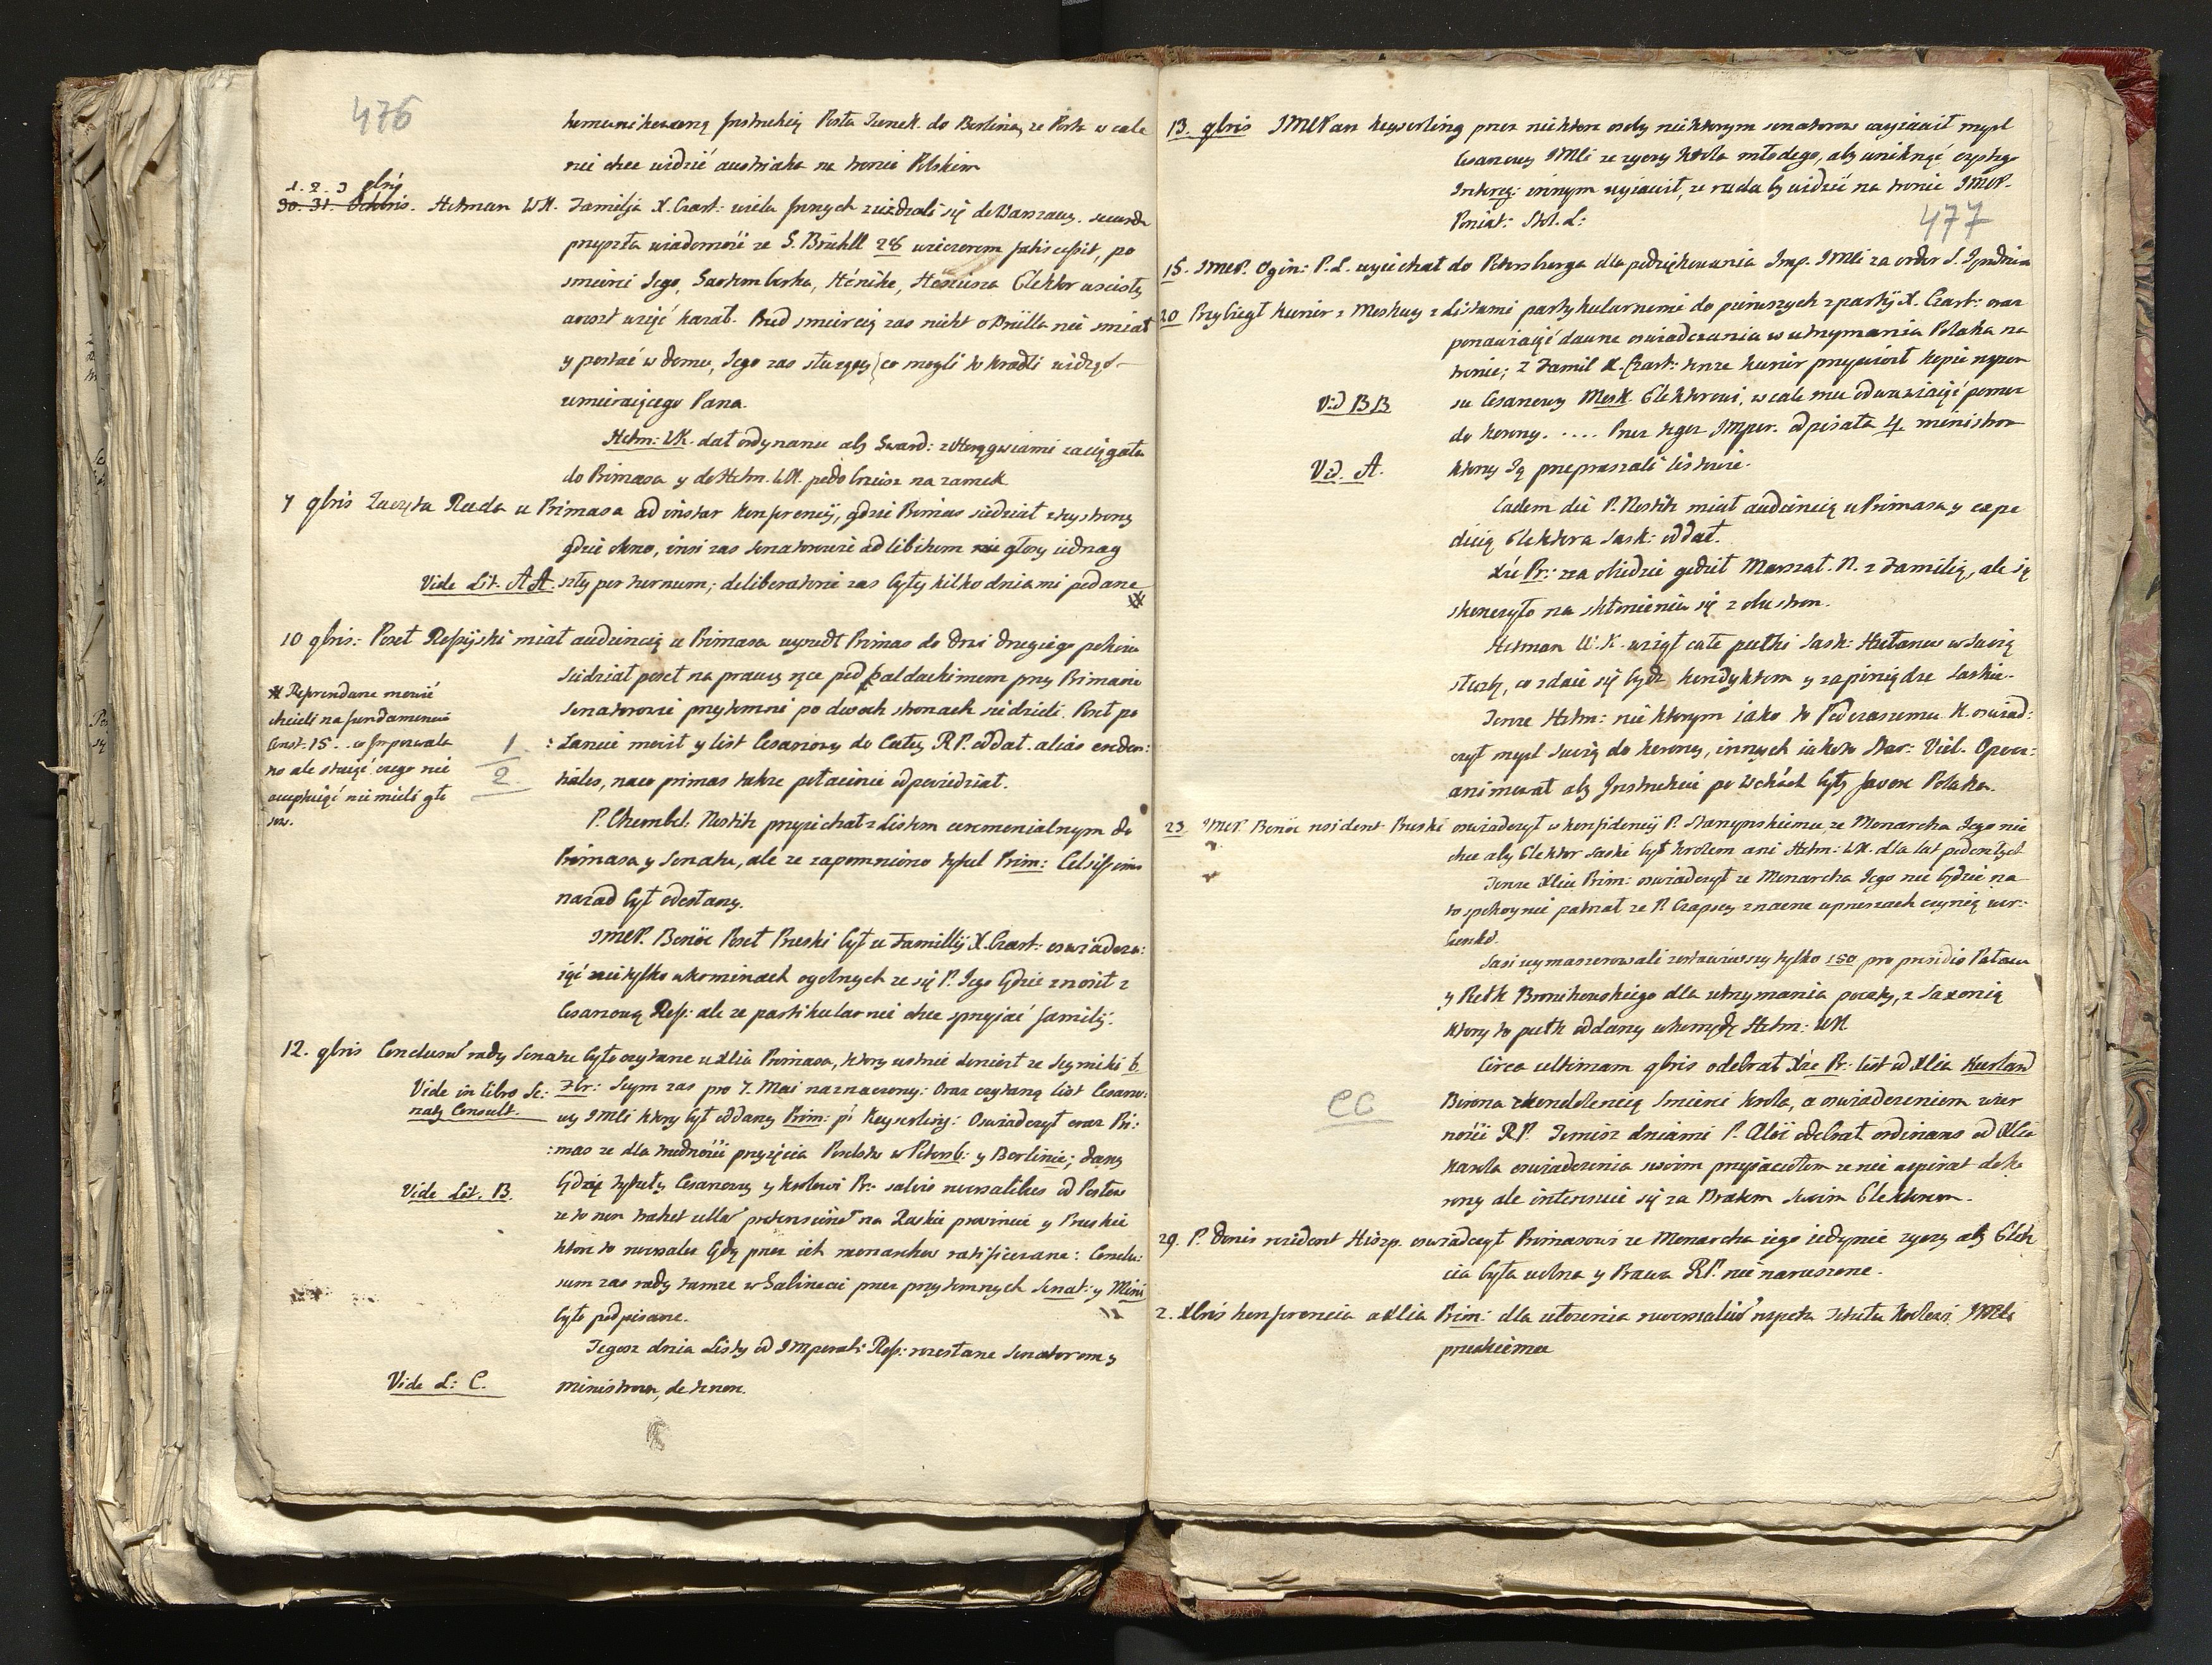 476
komunikowaną Instrukcią Posła Tureck. do Berlina, ze Porta w cale
nie chce widzić austriaka na tronie Polskim
1. 2. 3 9bris
30. 31. Octobris. Hetman WK. Familja X. Czart: wielu Innych ziezdzali się do Warszawy.
przyszła wiadomość ze G. Brühll 28 wieczorem fatis cessit, po
smierci Jego, Elektor
areszt wziąć kazał. Przed smiercią zas nicht o Brülla nie smiał
y postać w domu, Jego zas słuzący co mogli to kradli widząc
umieraiącego Pana.
Hetm: WK. dał ordynans aby Gward: z Chorągwiami zaciągała
do Primasa y do Hetm. WK. podobniesz na zamek
7 9bris Zaczęta Rada u Primasa ad instar konferencij, gdzie Primas siedział z tey strony
gdzie okno, insi zas senatorowie ad libitum głosy iednag
Vide Lit. AA. szły per turnum; deliberatoria zas były kilko dniami podane
10 9bris: Poseł Rossyiski miał audiencią u Primasa wyszedł Primas do drzwi drugiego pokoiu
siedział poseł na prawey ręce pod baldachimem przy Primasie
senatorowie przytomni po dwoch stronach siedzieli. Poseł po
1 :łacinie mowił y list Cesarzowy do Całey RP. oddał. alias creden:
2 tiales, naco primas takze po łacinie odpowiedział.
Reprendowac mowić
chcieli na fundamencie
Const. 15 . . co
no ale
nie mieli gło
sow.
P. Chambel: Nostitz przyiechał z Listem ceremonialnym do
Primasa y Senatu, ale ze zapomniono tytuł Prim: Celsissimo
nazad był odesłany.
JMCP. Benöe Poseł Pruski był u Famillij X. Czart: oswiadcza:
iąć nie tylko w terminach ogolnych ze się P. Jego będzie znosił z
Cesarzową Ross: ale ze partikular nie chce sprzyiać familij.
12. 9bris Conclusu rady Senatu było czytane u Xcia Primasa, ktory ustnie doniosł ze Seymiki 6.
Vide in libro Se: 7br: Seym zas pro 7. Maii naznaczony: Oraz czytany list Cesarzo:
natg Consult. wy JMci ktory był oddany Prim: pr Keyserling: Oswiadczył oraz Pri:
:mas ze dla trudności przyięcia Poselstw w Petersb: y Berlinie; dany
Vide Lit. B. będzie tytuły Cesarzowy y krolowi Pr: salvis reversalibus od Posłow
ze to non trahet ullā pretensionē na Ruskie prowincie y Pruskie
ktore to reversales będą przez ich monarchow ratificowane: Conclu:
sum zas rady tamze w Gabinecie przez przytomnych Senat: y Mini
było podpisane.
Tegosz dnia Listy od Imperat: Ross: rozesłane Senatorom y
Vide L: C. ministrom, de tenore.
13. 9bris JMCPan Keyserling przez niektore osoby niektorym senatorow wyiawił mysl
Cesarzowy JMci ze zyczy krola młodego, aby uniknąć częstego
Interreg: innym wyiawił, ze rada by widzić na tronie JMCP.
Poniat: Stol. L:
477
15. JMCP. Ogin: P. L. wyiechał do Petersburga dla podziękowania Imp. JMci za order S. Jendrzeia
20 Przybiegł kurier z Moskwy z listami partykularnemi do pierwszych z partyi X. Czart: oraz
ponawiaiąć dawne oswiadczenia w utrzymania Polaka na
tronie; z Famil X. Czart: tenze kurier przywiosł kopie respon
Vid BB su Cesarzowy Mosk. Elektorowi, w cale mu odmawiaiąć pomoc
do korony. . . . . Przez tegoz Imper. odpisała 4. ministrom
Vid. A. ktorzy Ją przepraszali listownie.
Eadem die P. Nostitz miał audiencią u Primasa y expe
dicią Elektora Sask: oddał.
Xże Pr: na obiedzie godził Marszał. N. z Familią, ale się
skonczyło na skłonieniu się z obu stron.
Hetman W. K. wziął całe pułki Sask: Hułanow w swoią
słuzbę, co zdaie się bydz konduktem y za pieniądze Saskie.
Tenze Hetm: niektorym iako to Podczaszemu K. oswiad:
czył mysl swoią do korony, innych iakoto Star: Viel. Opocz:
animował aby Instrukcie po Wdztwach były favore Polaka.
23 JMCP. Benöe resident Pruski oswiadczył w konfidencij P. Starzynskiemu, ze Monarcha Jego nie
chce aby Elektor saski był krolem ani Hetm: WK. dla lat podeszłych
Tenze Xciu Prim: oswiadczył ze Monarcha Jego nie będzie na
to spokoynie patrzał ze P. Czapscy znaczne w prusach czynią wer:
bunki.
Sasi wymaszerowali zostawiwszy tylko 150 pro presidio Pałacu
y Pułk Bronikowskiego dla utrzymania poczty, z Saxonią
ktory to pułk oddany w kommdę Hetm: WK.
Circa ultimam 9bris odebrał Xże Pr: list od Xcia Kurland
CC Birona z kondolencią Smierci krola, a oswiadczeniem wier
ności RP. Temisz dniami P. Aloi odebrał ordinans od Xcia
Karola oswiadczenia swoim przyiaciołom ze nie aspirat do ko
rony ale interesuie się za Bratem swoim Elektorem.
29. P. Donis resident Hiszp. oswiadczył Primasowi ze Monarcha iego iedynie zyczy aby Elek
cia była wolna y Prawa RP. nie naruszone.
2. Xbris konferencia u Xcia Prim: dla ułozenia reversaliū respectu tytułu Krolowi JMci
pruskiemu